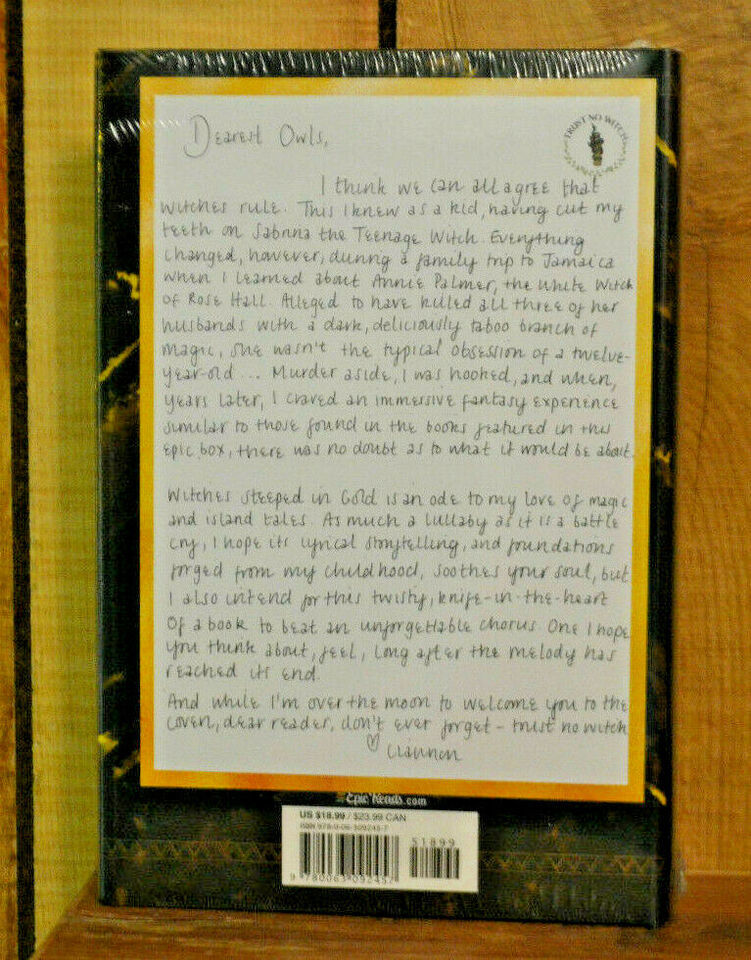 Dearest Owls,
TRUST NO WITCH
I think we can all agree that
witches rule. This I knew as a kid, having cut my
teeth on Sabrina the Teenage Witch. Everything
changed, however, during a family trip to Jamaica
when I learned about Annie Palmer, the White Witch
of Rose Hall. Alleged to have killed all three of her
husbands with a dark, deliciously taboo branch of
magic, she wasn't the typical obsession of a twelve-
year-old ... Murder aside, I was hooked, and when,
years later, I craved an immersive fantasy experience
similar to those found in the books featured in this
epic box, there was no doubt as to what it would be about.
Witches Steeped in Gold is an ode to my love of magic
and island tales. As much a lullaby as it is a battle
cry, I hope its lyrical storytelling, and foundations
forged from my childhood, soothes your soul, but
I also intend for this twisty, knife-in-the-heart
of a book to beat an unforgettable chorus. One I hope
you think about, feel, long after the melody has
reached its end.
And while I'm over the moon to welcome you to the
coven, dear reader, don't ever forget - trust no witch
♡ Ciannon
Epic Reads.com
US $18.99 / $23.99 CAN
ISBN 978-0-06-309245-7
51899
9 780063 092457